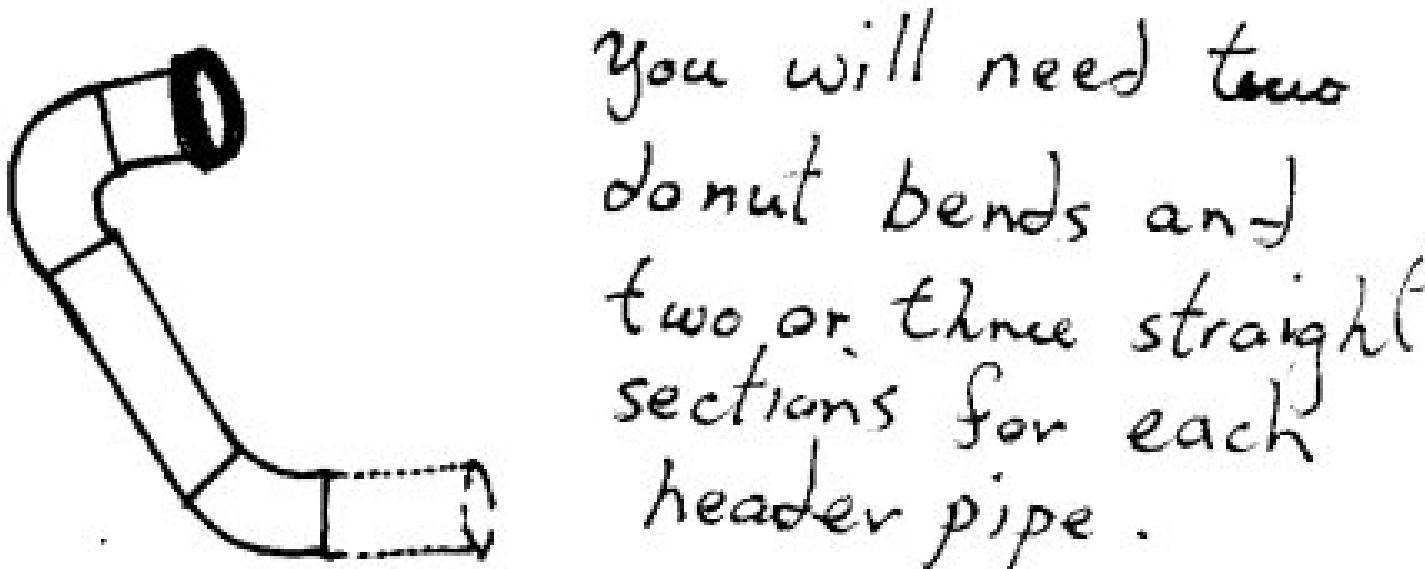 you will need two
donut bends and
two or three straight
sections for each
header pipe.